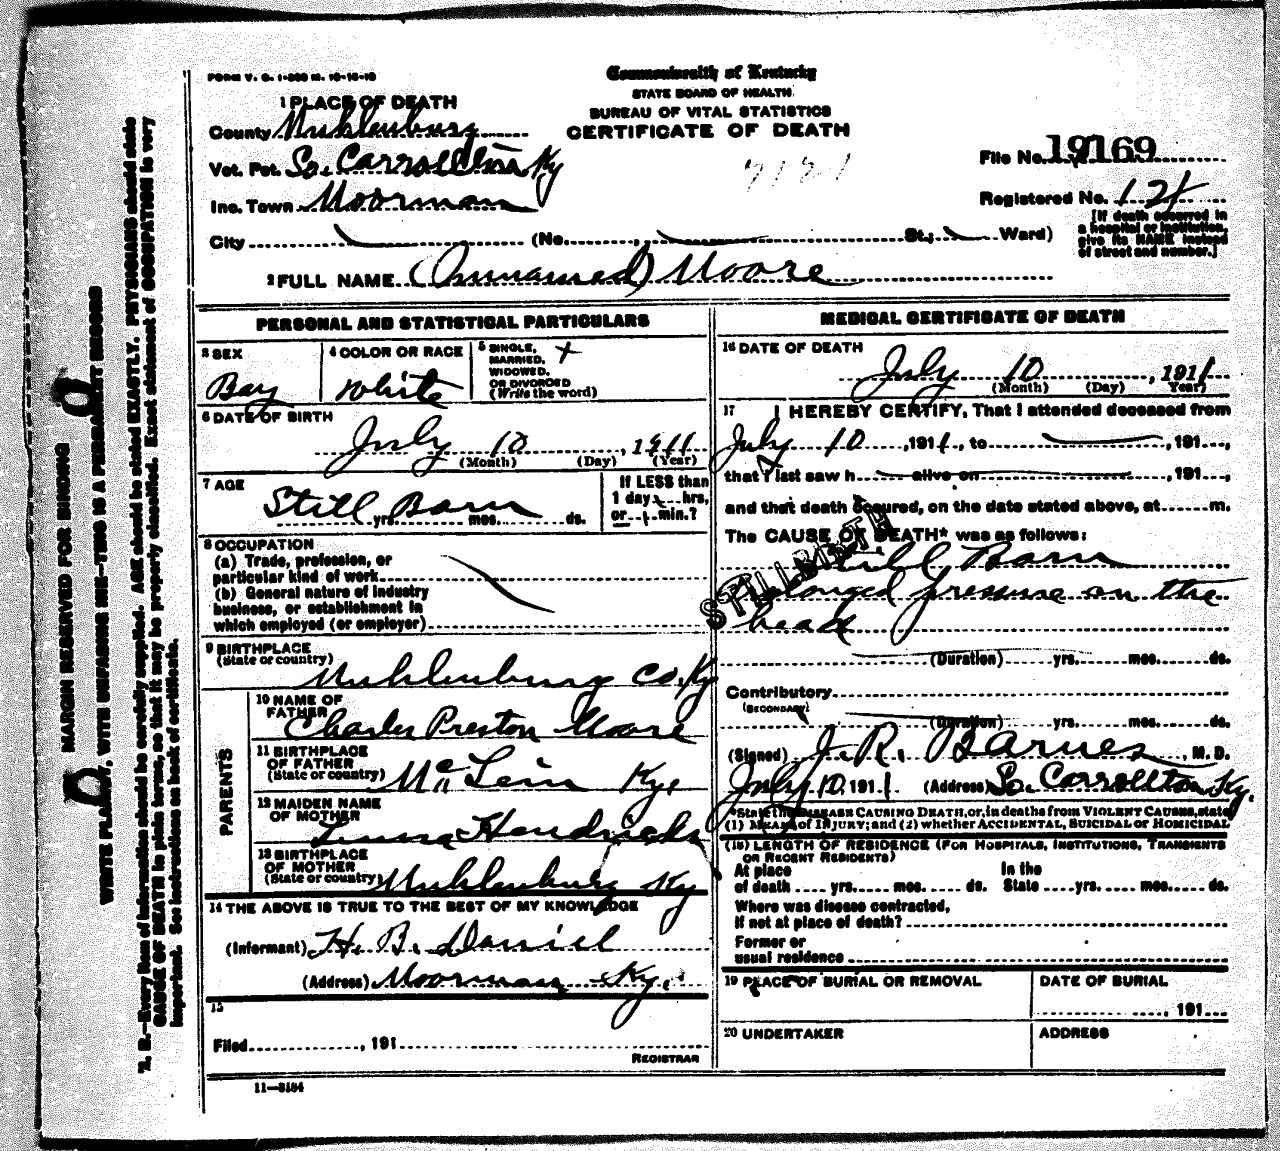 FORM V. S. 1-300 M. 10-18-10
Commonwealth of Kentucky
STATE BOARD OF HEALTH
BUREAU OF VITAL STATISTICS
CERTIFICATE OF DEATH
1 PLACE OF DEATH
County Muhlenburg
Vot. Pct. So. Carrollton Ky
Inc. Town Moorman
City (No. St.; Ward)
File No. 19169
Registered No. 121
[If death occurred in a hospital or institution, give its NAME instead of street and number.]
2 FULL NAME (Unnamed) Moore
PERSONAL AND STATISTICAL PARTICULARS
3 SEX
Boy
4 COLOR OR RACE
White
5 SINGLE, MARRIED, WIDOWED, OR DIVORCED (Write the word)
6 DATE OF BIRTH
July 10, 1911
(Month) (Day) (Year)
7 AGE
Still Born
yrs. mos. ds.
If LESS than 1 day hrs. or min.?
8 OCCUPATION
(a) Trade, profession, or
particular kind of work
(b) General nature of industry
business, or establishment in
which employed (or employer)
9 BIRTHPLACE
(State or country)
Muhlenburg Co. Ky
PARENTS
10 NAME OF FATHER
Charles Preston Moore
11 BIRTHPLACE OF FATHER (State or country)
Ky.
12 MAIDEN NAME OF MOTHER
Hendricks
13 BIRTHPLACE OF MOTHER (State or country)
Muhlenburg Ky
14 THE ABOVE IS TRUE TO THE BEST OF MY KNOWLEDGE
(Informant) H. B. Daniel
(Address) Moorman Ky.
15
Filed , 191
REGISTRAR
11—3184
MEDICAL CERTIFICATE OF DEATH
16 DATE OF DEATH
July 10, 1911
(Month) (Day) Year)
17 I HEREBY CERTIFY, That I attended deceased from
July 10, 1911, to , 191 ,
that I last saw h alive on , 191 ,
and that death occured, on the date stated above, at m.
The CAUSE OF DEATH* was as follows:
STILLBIRTH
Still Born
Prolonged pressure on the
head
(Duration) yrs. mos. ds.
Contributory
(SECONDARY)
(Duration) yrs. mos. ds.
(Signed) J. R. Barnes, M. D.
July 10, 1911 (Address) So. Carrollton Ky.
*State the DISEASE CAUSING DEATH, or, in deaths from VIOLENT CAUSES, state
(1) MEANS of INJURY; and (2) whether ACCIDENTAL, SUICIDAL or HOMICIDAL
(18) LENGTH OF RESIDENCE (FOR HOSPITALS, INSTITUTIONS, TRANSIENTS
OR RECENT RESIDENTS)
At place In the
of death yrs. mos. ds. State yrs. mos. ds.
Where was disease contracted,
if not at place of death?
Former or
usual residence
19 PLACE OF BURIAL OR REMOVAL
DATE OF BURIAL
, 191
20 UNDERTAKER
ADDRESS
MARGIN RESERVED FOR BINDING
WRITE PLAINLY, WITH UNFADING INK—THIS IS A PERMANENT RECORD
N. B.—Every item of information should be carefully supplied. AGE should be stated EXACTLY. PHYSICIANS should state
CAUSE OF DEATH in plain terms, so that it may be properly classified. Exact statement of OCCUPATION is very
important. See instructions on back of certificate.